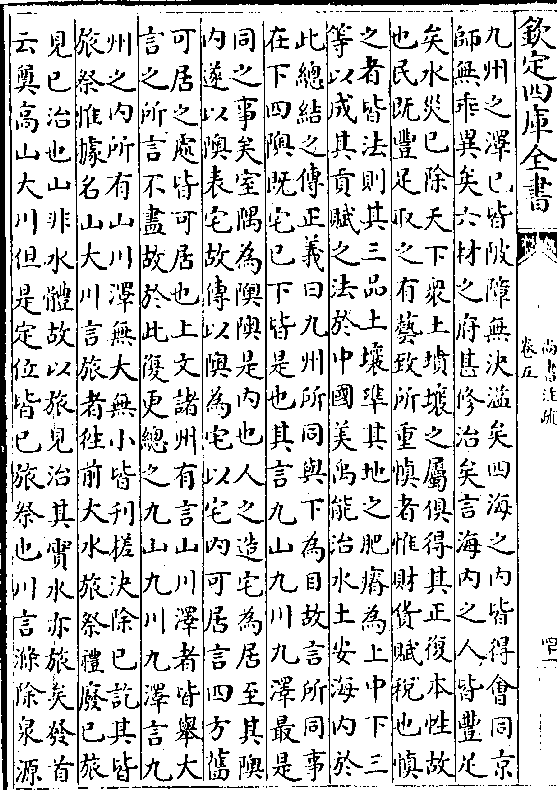 欽定四庫全書
尚書注疏
卷五
九州之澤已皆陂障無決溢矣四海之内皆得會同京
師無乖異矣六材之府甚修治矣言海内之人皆豐足
矣水災已除天下衆土墳壤之屬俱得其正復本性故
也民既豐足取之有藝致所重慎者惟財貨賦稅也慎
之者皆法則其三品土壤凖其地之肥瘠為上中下三
等以成其貢賦之法於中國美禹能治水土安海内於
此總結之傳正義曰九州所同與下為目故言所同事
在下四隩既宅已下皆是也其言九山九川九澤最是
同之事矣室隅為隩隩是内也人之造宅為居至其隩
内遂以隩表宅故傳以隩為宅以宅内可居言四方舊
可居之處皆可居也上文諸州有言山川澤者皆舉大
言之所言不盡故於此復更總之九山九川九澤言九
州之内所有山川澤無大無小皆刊槎決除已訖其皆
旅祭惟據名山大川言旅者往前大水旅祭禮廢已旅
見已治也山非水體故以旅見治其實水亦旅矣發首
云奠高山大川但是定位皆已旅祭也川言滌除泉源